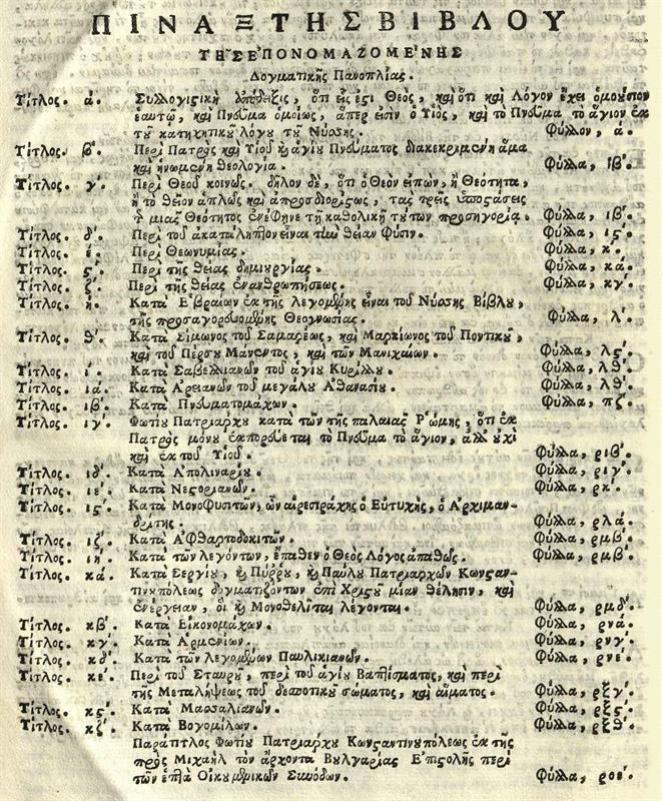 ΠΙΝΑΞ ΤΗΣ ΒΙΒΛΟΥ
ΤΗ῀Σ Ε᾿ΠΟΝΟΜΑΖΟΜΕ΄ΝΗΣ
Δογματικῆς Πανοπλίας.
Τίτλος. ά. Συλλογιστικὴ ἀπόδειξις, ὅτι εἷς ἐστι Θεὸς, καὶ ὅτι καὶ Λόγον ἔχει ὁμοούσιον
ἑαυτῷ, καὶ Πνεῦμα ὁμοίως, ἅπερ εἰσὶν ὁ Υἱὸς, καὶ τὸ Πνεῦμα τὸ ἅγιον ἐκ
τοῦ κατηχητικοῦ λόγου τοῦ Νύσσης. Φύλλον, ά.
Τίτλος. β΄. Περὶ Πατρὸς καὶ Υἱοῦ καὶ ἁγίου Πνεύματος διακεκριμένη ἅμα
καὶ ἡνωμένη θεολογία. Φύλλα, ιβ΄.
Τίτλος. γ΄. Περὶ Θεοῦ κοινῶς. δῆλον δὲ, ὅτι ὁ Θεὸν εἰπὼν, ἢ Θεότητα,
ἢ τὸ θεῖον ἁπλῶς καὶ ἀπροσδιορίστως, τὰς τρεῖς ὑποστάσεις
τῆς μιᾶς Θεότητος ἐνέφηνε τῇ καθολικῇ τούτων προσηγορίᾳ. Φύλλα, ιβ΄.
Τίτλος. δ΄. Περὶ τοῦ ἀκατάληπτον εἶναι τὴν θείαν φύσιν. Φύλλα, ις΄.
Τίτλος. έ. Περὶ Θεωνυμίας. Φύλλα, κ΄.
Τίτλος. ς΄. Περὶ τῆς θείας δημιουργίας. Φύλλα, κά.
Τίτλος. ζ΄. Περὶ τῆς θείας ἐνανθρωπήσεως. Φύλλα, κγ΄.
Τίτλος. ή. Κατὰ Ἑβραίων ἐκ τῆς λεγομένης εἶναι τοῦ Νύσσης Βίβλου,
τῆς προσαγορευομένης Θεογνωσίας. Φύλλα, λ΄.
Τίτλος. θ΄. Κατὰ Σίμωνος τοῦ Σαμαρέως, καὶ Μαρκίωνος τοῦ Ποντικοῦ,
καὶ τοῦ Πέρσου Μάνεντος, καὶ τῶν Μανιχαίων. Φύλλα, λς΄.
Τίτλος. ί. Κατὰ Σαβελλιανῶν τοῦ ἁγίου Κυρίλλου. Φύλλα, λθ΄.
Τίτλος. ιά. Κατὰ Ἀρειανῶν τοῦ μεγάλου Ἀθανασίου. Φύλλα, λθ΄.
Τίτλος. ιβ΄. Κατὰ Πνευματομάχων. Φύλλα, πζ΄.
Τίτλος. ιγ΄. Φωτίου Πατριάρχου κατὰ τῶν τῆς παλαιᾶς Ῥώμης, ὅτι ἐκ
Πατρὸς μόνου ἐκπορεύεται τὸ Πνεῦμα τὸ ἅγιον, ἀλλ' οὐχὶ
καὶ ἐκ τοῦ Υἱοῦ. Φύλλα, ριβ΄.
Τίτλος. ιδ΄. Κατὰ Ἀπολιναρίου. Φύλλα, ριγ΄.
Τίτλος. ιέ. Κατὰ Νεστοριανῶν. Φύλλα, ρκ΄.
Τίτλος. ις΄. Κατὰ Μονοφυσιτῶν, ὧν αἱρεσιάρχης ὁ Εὐτυχὴς, ὁ Ἀρχιμαν-
δρίτης. Φύλλα, ρλά.
Τίτλος. ιζ΄. Κατὰ Ἀφθαρτοδοκιτῶν. Φύλλα, ρμβ΄.
Τίτλος. ιή. Κατὰ τῶν λεγόντων, ἔπαθεν ὁ Θεὸς Λόγος ἀπαθῶς. Φύλλα, ρμβ΄.
Τίτλος. κά. Κατὰ Σεργίου, καὶ Πύῤῥου, καὶ Παύλου Πατριαρχῶν Κωνσταν-
τινουπόλεως δογματιζόντων ἐπὶ Χριστοῦ μίαν θέλησιν, καὶ
ἐνέργειαν, οἳ καὶ Μονοθελῖται λέγονται. Φύλλα, ρμδ΄.
Τίτλος. κβ΄. Κατὰ Εἰκονομάχων. Φύλλα, ρνά.
Τίτλος. κγ΄. Κατὰ Ἀρμενίων. Φύλλα, ρνγ΄.
Τίτλος. κδ΄. Κατὰ τῶν λεγομένων Παυλικιανῶν. Φύλλα, ρνέ.
Τίτλος. κέ. Περὶ τοῦ Σταυροῦ, περὶ τοῦ ἁγίου Βαπτίσματος, καὶ περὶ
τῆς Μεταλήψεως τοῦ δεσποτικοῦ σώματος, καὶ αἵματος. Φύλλα, ρξγ΄.
Τίτλος. κς΄. Κατὰ Μασσαλιανῶν. Φύλλα, ρξς΄.
Τίτλος. κζ΄. Κατὰ Βογομίλων. Φύλλα, ρξθ΄.
Παράτιτλος Φωτίου Πατριάρχου Κωνσταντινουπόλεως ἐκ τῆς
πρὸς Μιχαὴλ τὸν ἄρχοντα Βουλγαρίας Ἐπιστολῆς περὶ
τῶν ἑπτὰ Οἰκουμενικῶν Συνόδων. Φύλλα, ροέ.